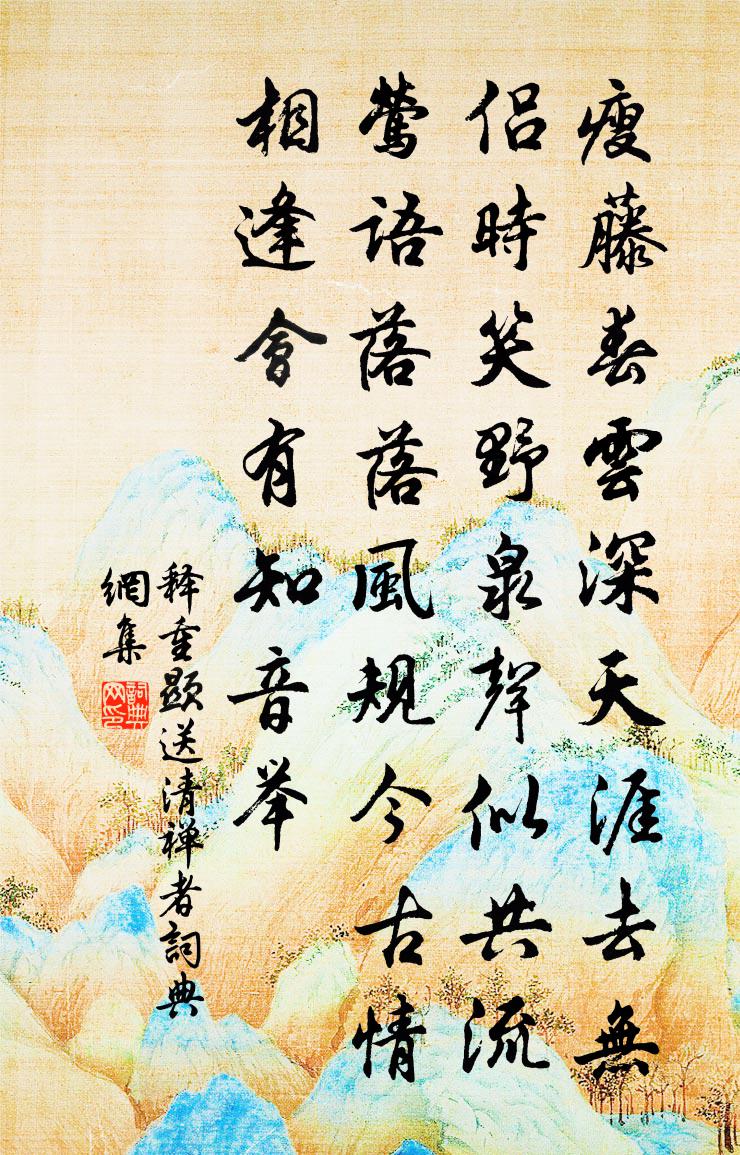 瘦藤春雲深天涯去無
侣時笑野泉聲似共流
鶯語落落風規今古情
相逢會有知音举
釋重顯送清禅者詞典
網集
詞典網印